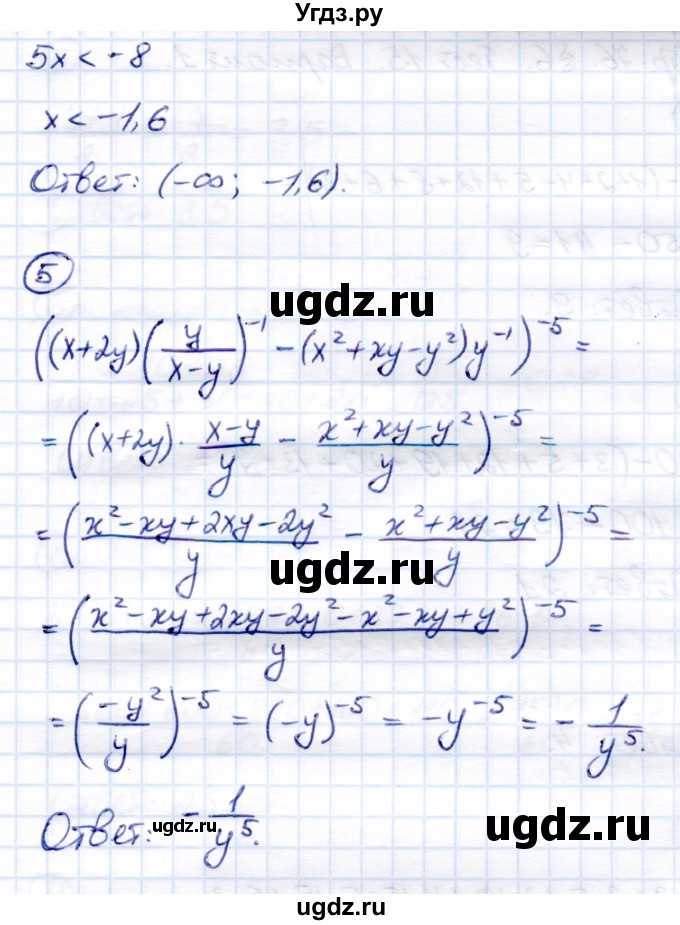 Угдз.ру
5x < -8
x < -1,6
Ответ: (-∞; -1,6).
5
ugdz.ru
((x+2y)(y/(x-y))^-1 - (x²+xy-y²)y^-1)^-5 =
= ((x+2y) · (x-y)/y - (x²+xy-y²)/y)^-5 =
ugdz.ru
= ((x²-xy+2xy-2y²)/y - (x²+xy-y²)/y)^-5 =
ugdz.ru
= ((x²-xy+2xy-2y²-x²-xy+y²)/y)^-5 =
= (-y²/y)^-5 = (-y)^-5 = -y^-5 = - 1/y⁵.
Ответ: - 1/y⁵.
ugdz.ru ugdz.ru
ugdz.ru
ugdz.ru